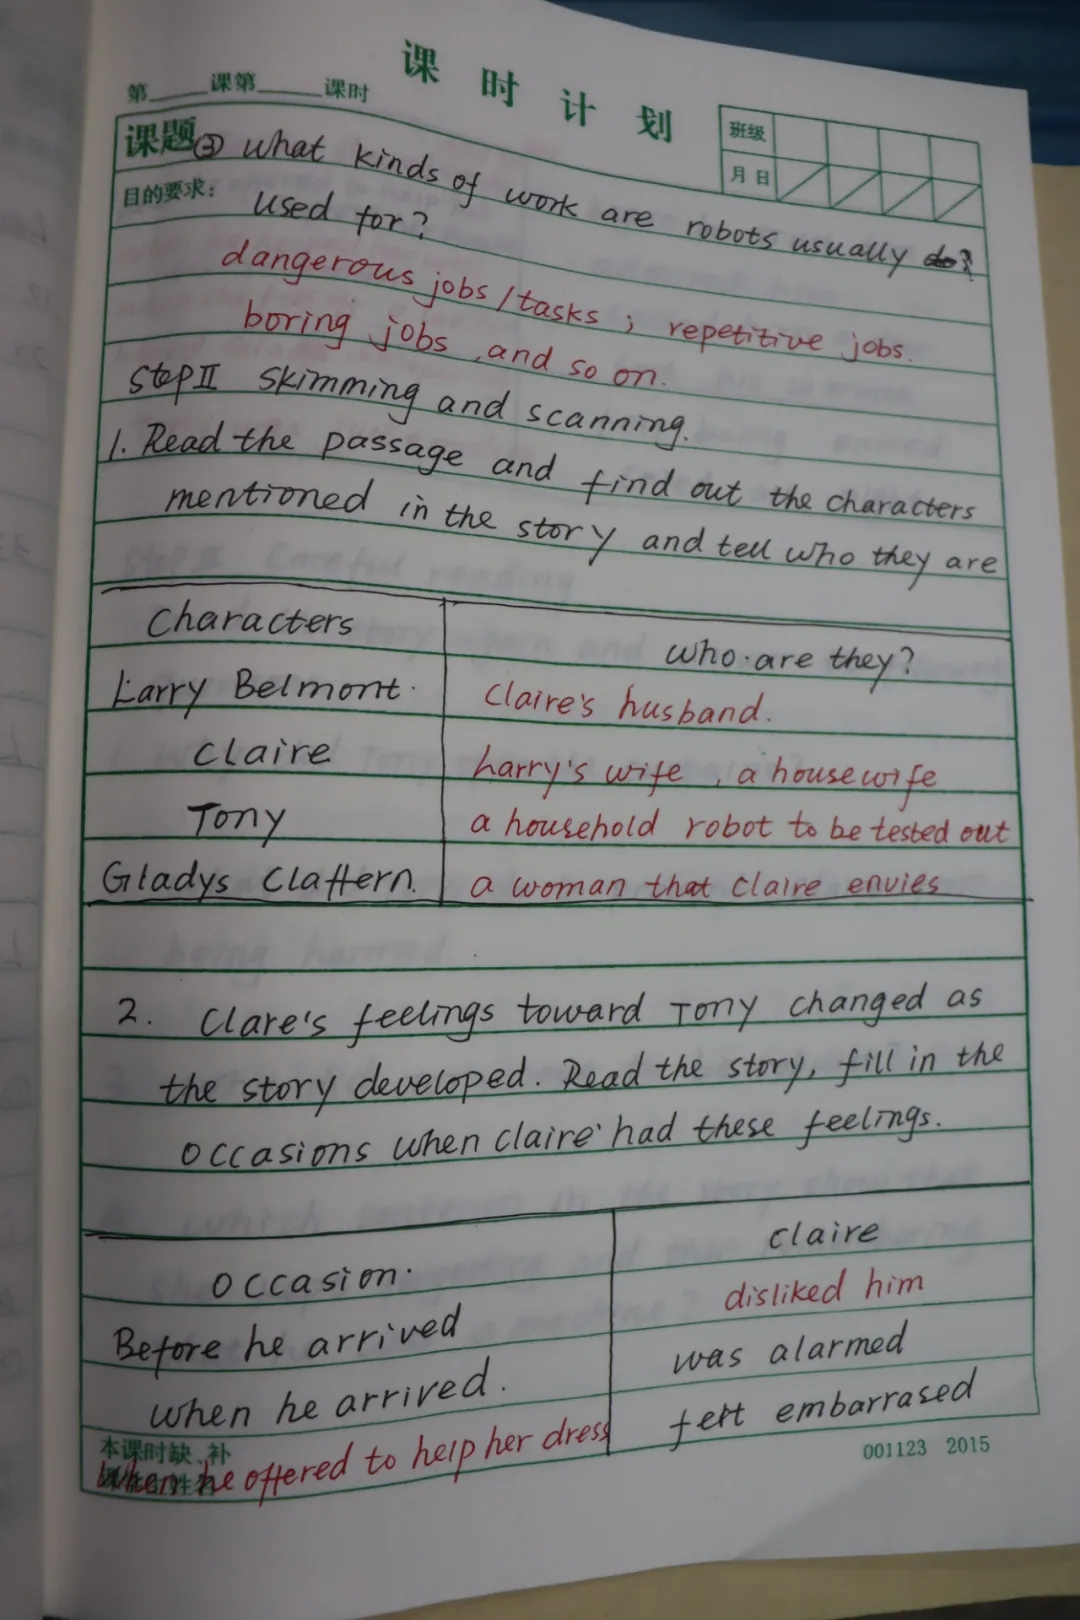 课 时 计 划
第____课第____课时
班级
月 日
课题 ③ What kinds of work are robots usually
目的要求: used for?
dangerous jobs/tasks ; repetitive jobs.
boring jobs, and so on.
Step II Skimming and scanning.
1. Read the passage and find out the characters
mentioned in the story and tell who they are
Characters who are they?
Larry Belmont. Claire's husband.
Claire harry's wife, a housewife
Tony a household robot to be tested out
Gladys Claffern. a woman that Claire envies
2. Clare's feelings toward Tony changed as
the story developed. Read the story, fill in the
occasions when claire had these feelings.
occasion. claire
Before he arrived disliked him
when he arrived. was alarmed
When he offered to help her dress felt embarrased
本课时缺、补
001123 2015